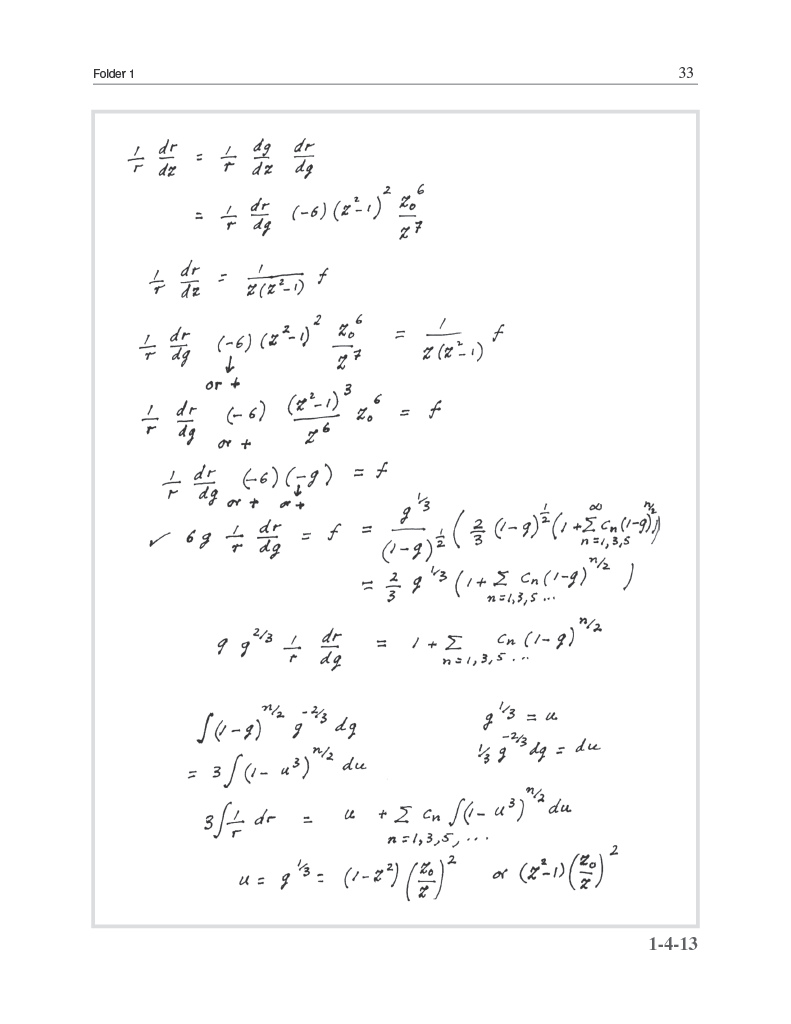 Folder 1 33
1/r dr/dz = 1/r dg/dz dr/dg
= 1/r dr/dg (-6) (z²-1)² z₀⁶/z⁷
1/r dr/dz = 1/(z(z²-1)) f
1/r dr/dg (-6) (z²-1)² z₀⁶/z⁷ = 1/(z(z²-1)) f
↓
or +
1/r dr/dg (-6) (z²-1)³/z⁶ z₀⁶ = f
or +
1/r dr/dg (-6) (-g) = f
or + or +
✓ 6g 1/r dr/dg = f = g^{1/3}/(1-g)^{1/2} (2/3 (1-g)^{1/2} (1 + Σ_{n=1,3,5}^{∞} cₙ (1-g)^{n/2}))
= 2/3 g^{1/3} (1 + Σ_{n=1,3,5...} cₙ (1-g)^{n/2})
9 g^{2/3} 1/r dr/dg = 1 + Σ_{n=1,3,5...} cₙ (1-g)^{n/2}
∫(1-g)^{n/2} g^{-2/3} dg g^{1/3} = u
= 3∫(1-u³)^{n/2} du 1/3 g^{-2/3} dg = du
3∫ 1/r dr = u + Σ_{n=1,3,5,...} cₙ ∫(1-u³)^{n/2} du
u = g^{1/3} = (1-z²) (z₀/z)² or (z²-1)(z₀/z)²
1-4-13